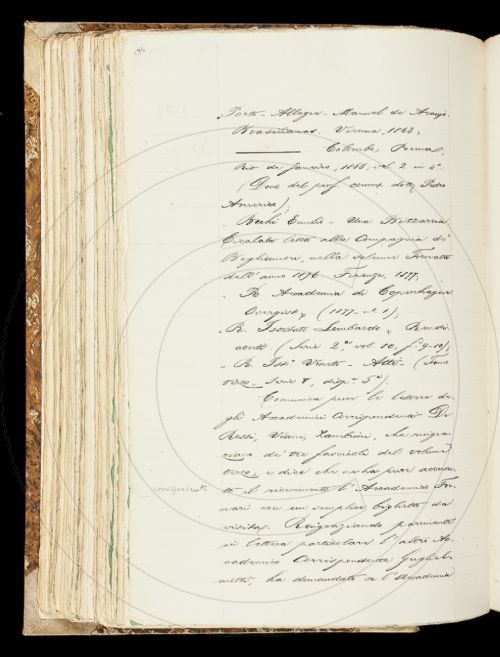 196
Porto-Allegre - Manuel de Araujo.
Brasilianas. Vienna, 1863;
Colombo, Poema,
Rio de Janeiro, 1866, vol. 2 in 4°.
(Dono del prof. comm. dott. Pietro
Americo);
- Bechi Emilio - Una Bizzarria,
Cicalata letta alla Compagnia de'
nella solenne Tornata
dell'anno 1876. Firenze, 1877;
- R. Accademia di Copenhagen
Oversigt, (1877 - n. 1);
- R. Istituto Lombardo, Rendi-
conti (Serie 2ª, vol. 10, f. 9-10);
- R. Ist. Veneto - Atti - (Tomo
terzo, Serie V, disp. 5ª).
Comunica pure le lettere de-
gli Accademici Corrispondenti De
Rossi, Zambrini, che ringra-
ziano de' tre fascicoli del volume
terzo, e dice che ne ha pure accusa-
to il ricevimento l'Accademico Fer-
corrispondente
rari con un semplice biglietto da
visita. Ringraziando parimente
in lettera particolare l'altro Ac-
cademico Corrispondente Gugliel-
motti, ha domandato se l'Accademia